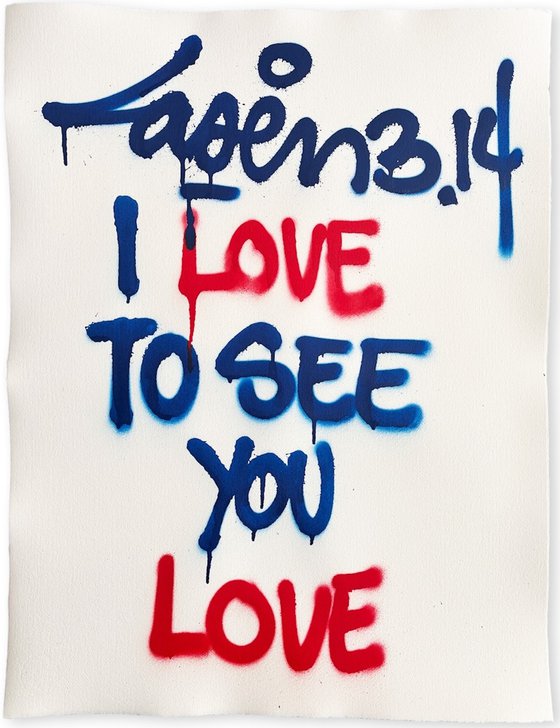 Laser 3.14
I LOVE
TO SEE
YOU
LOVE